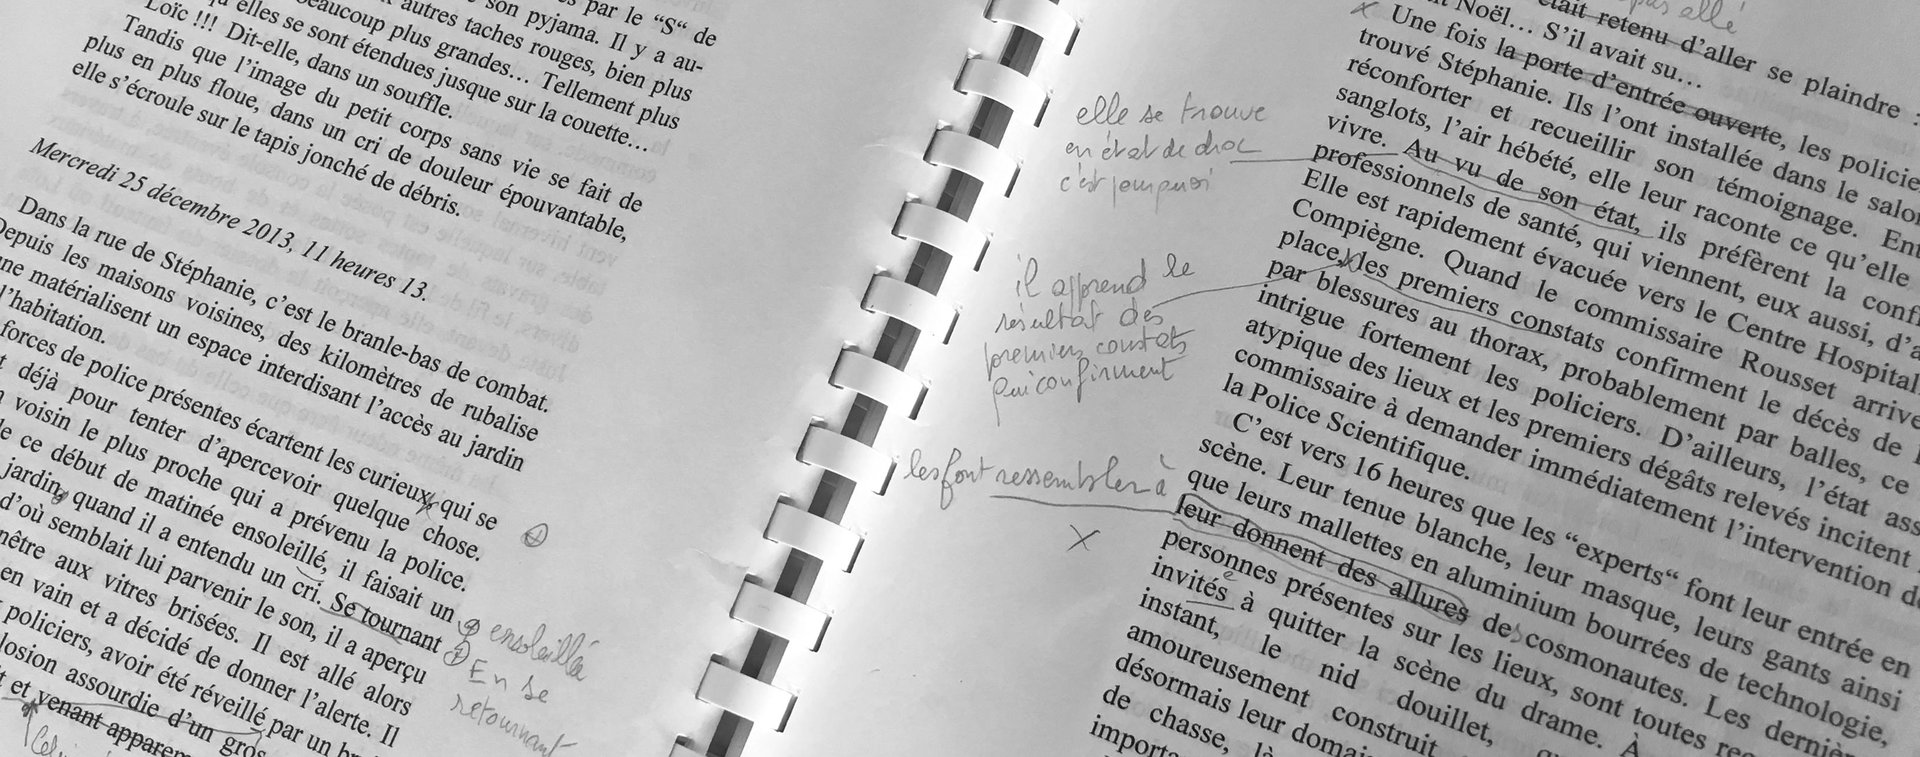 par le “S“ de
son pyjama. Il y a au-
autres taches rouges, bien plus
beaucoup plus grandes… Tellement plus
qu'elles se sont étendues jusque sur la couette…
Loïc !!! Dit-elle, dans un souffle.
Tandis que l’image du petit corps sans vie se fait de
plus en plus floue, dans un cri de douleur épouvantable,
elle s’écroule sur le tapis jonché de débris.
Mercredi 25 décembre 2013, 11 heures 13.
Dans la rue de Stéphanie, c’est le branle-bas de combat.
Depuis les maisons voisines, des kilomètres de rubalise
matérialisent un espace interdisant l’accès au jardin
l’habitation.
forces de police présentes écartent les curieux, qui se
déjà pour tenter d’apercevoir quelque chose.
voisin le plus proche qui a prévenu la police.
de ce début de matinée ensoleillé, il faisait un
jardin, quand il a entendu un cri. Se tournant
d’où semblait lui parvenir le son, il a aperçu
aux vitres brisées. Il est allé alors
en vain et a décidé de donner l’alerte. Il
policiers, avoir été réveillé par un
assourdie d’un gros
et venant
ensoleillée
En se
retournant
elle se trouve
en état de choc
c'est pourquoi
il apprend le
résultat des
premiers constats
qui confirment
les font ressembler à
x
était retenu d’aller se plaindre :
Noël… S’il avait su…
Une fois la porte d’entrée ouverte, les policiers
trouvé Stéphanie. Ils l’ont installée dans le salon
réconforter et recueillir son témoignage.
sanglots, l’air hébété, elle leur raconte ce qu’elle
vivre. Au vu de son état, ils préfèrent la
professionnels de santé, qui viennent, eux aussi,
Elle est rapidement évacuée vers le Centre Hospitalier
Compiègne. Quand le commissaire Rousset arrive
place, les premiers constats confirment le décès de
par blessures au thorax, probablement par balles, ce
intrigue fortement les policiers. D’ailleurs, l’état
atypique des lieux et les premiers dégâts relevés incitent
commissaire à demander immédiatement l’intervention
la Police Scientifique.
C’est vers 16 heures que les “experts“ font leur entrée en
scène. Leur tenue blanche, leur masque, leurs gants ainsi
que leurs mallettes en aluminium bourrées de technologie,
leur donnent des allures de cosmonautes. Les
personnes présentes sur les lieux, sont toutes
invités à quitter la scène du drame. À
instant, le nid douillet,
amoureusement construit
désormais leur
de chasse,